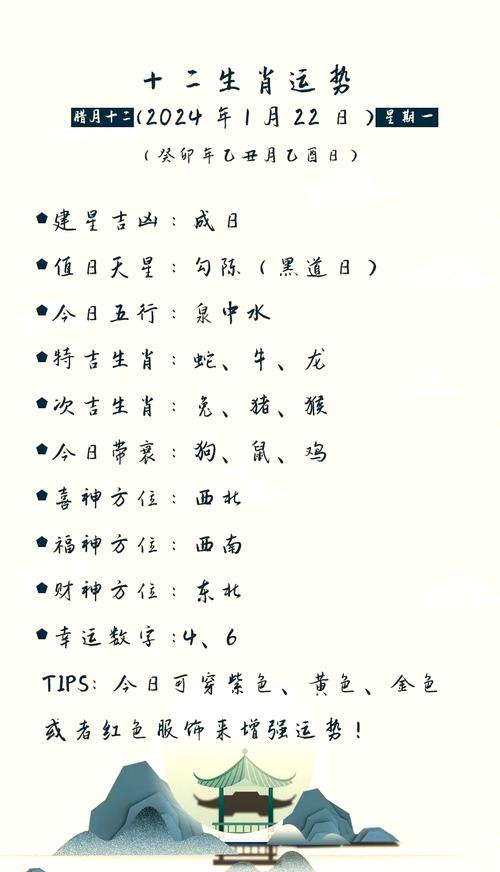 十二生肖运势
腊月十二(2024年1月22日)星期一
(癸卯年乙丑月乙酉日)
建星吉凶:成日
值日天星:勾陈(黑道日)
今日五行:泉中水
特吉生肖:蛇、牛、龙
次吉生肖:兔、猪、猴
今日带衰:狗、鼠、鸡
喜神方位:西北
福神方位:西南
财神方位:东北
幸运数字:4、6
TIPS:今日可穿紫色、黄色、金色
或者红色服饰来增强运势!